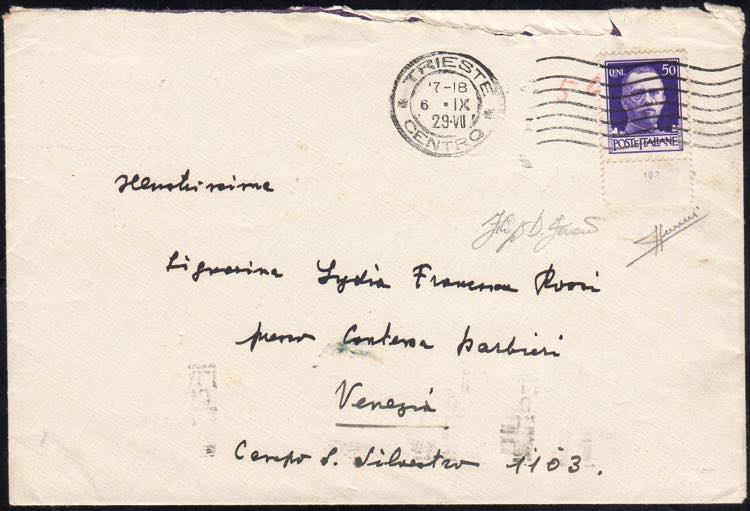 TRIESTE
17-18
6 · IX
29·VII
CENTRO
CENT. 50
POSTE ITALIANE
102
5
Illustrissima
Signorina Lydia Francesca Rossi
presso Contessa Barbieri
Venezia
Campo S. Silvestro 1103.